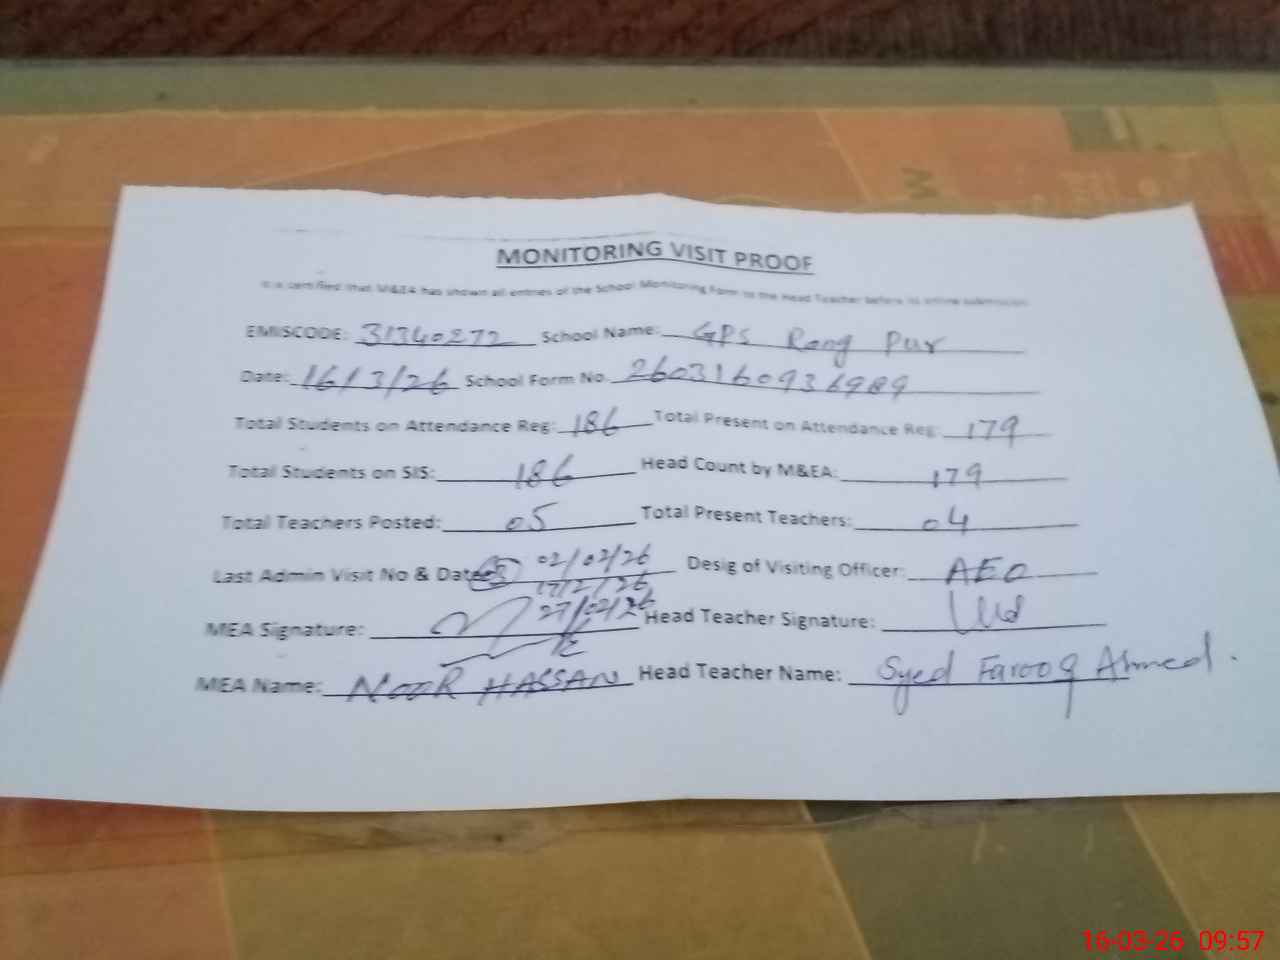 MONITORING VISIT PROOF
It is certified that M&EA has shown all entries of the School Monitoring Form to the Head Teacher before its online submission
EMISCODE: 31340272 School Name: GPS Rang Pur
Date: 16/3/26 School Form No. 2603160936989
Total Students on Attendance Reg: 186 Total Present on Attendance Reg: 179
Total Students on SIS: 186 Head Count by M&EA: 179
Total Teachers Posted: 05 Total Present Teachers: 04
Last Admin Visit No & Date: 03 02/02/26 Desig of Visiting Officer: AEO
17/2/26
27/02/26
MEA Signature: Head Teacher Signature:
MEA Name: NOOR HASSAN Head Teacher Name: Syed Farooq Ahmed.
W
16-03-26 09:57